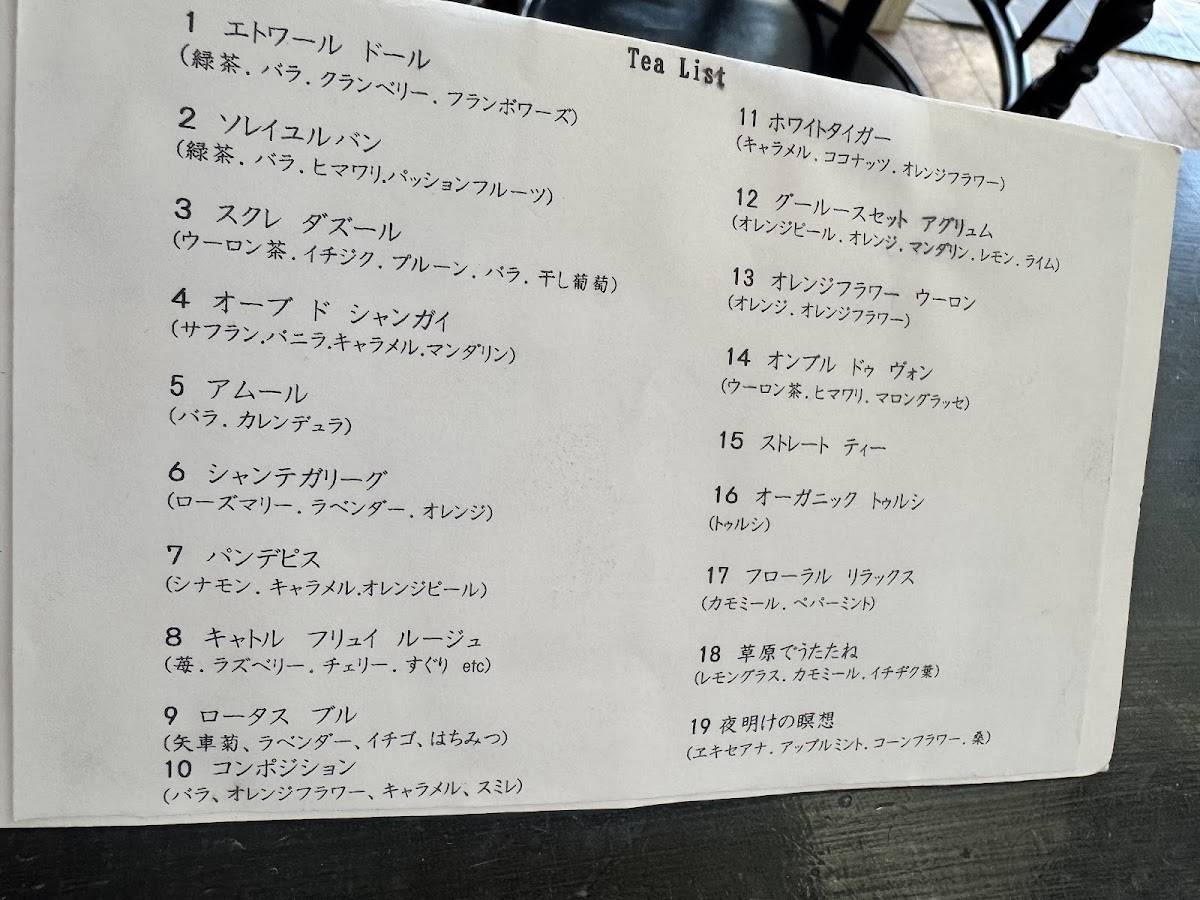 Tea List
1 エトワール ドール
(緑茶．バラ．クランベリー．フランボワーズ)
2 ソレイユルバン
(緑茶．バラ．ヒマワリ.パッションフルーツ)
3 スクレ ダズール
(ウーロン茶．イチジク．プルーン．バラ．干し葡萄)
4 オーブ ド シャンガイ
(サフラン.バニラ.キャラメル.マンダリン)
5 アムール
(バラ．カレンデュラ)
6 シャンテガリーグ
(ローズマリー．ラベンダー．オレンジ)
7 パンデピス
(シナモン．キャラメル.オレンジピール)
8 キャトル フリュイ ルージュ
(苺．ラズベリー．チェリー．すぐり etc)
9 ロータス ブル
(矢車菊、ラベンダー、イチゴ、はちみつ)
10 コンポジション
(バラ、オレンジフラワー、キャラメル、スミレ)
11 ホワイトタイガー
(キャラメル．ココナッツ．オレンジフラワー)
12 グールースセット アグリュム
(オレンジピール．オレンジ．マンダリン．レモン．ライム)
13 オレンジフラワー ウーロン
(オレンジ．オレンジフラワー)
14 オンブル ドゥ ヴォン
(ウーロン茶．ヒマワリ．マロングラッセ)
15 ストレート ティー
16 オーガニック トゥルシ
(トゥルシ)
17 フローラル リラックス
(カモミール．ペパーミント)
18 草原でうたたね
(レモングラス．カモミール．イチヂク葉)
19 夜明けの瞑想
(ヱキセアナ．アップルミント．コーンフラワー．桑)